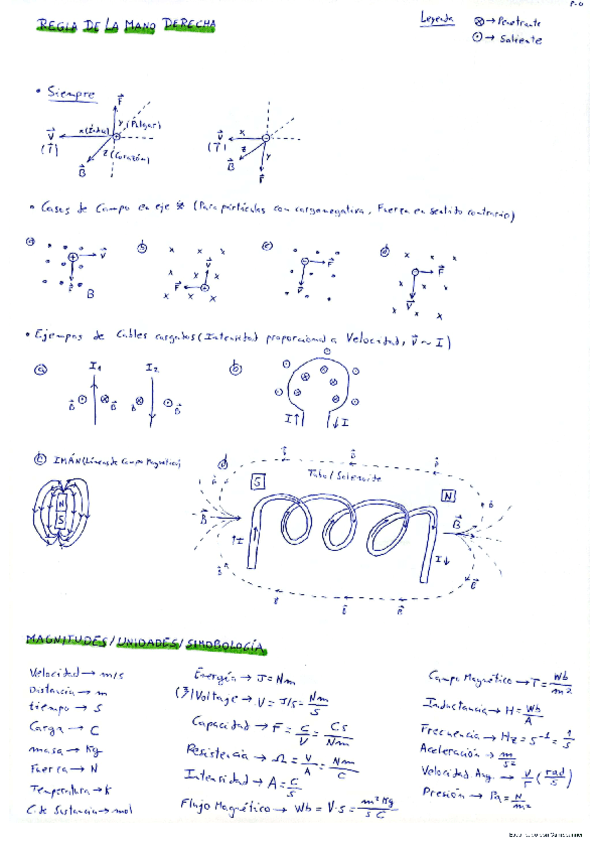 P-0
REGLA DE LA MANO DERECHA
Leyenda ⊗→ Penetrante
⊙→ Saliente
• Siempre
F
y (Pulgar)
V x (Índice)
(I)
z (Corazón)
B
V x
(I)
z y
B
F
• Casos de Campo en eje (Para partículas con carga negativa, Fuerza en sentido contrario)
a V F B
b V F
c F V
d F V
• Ejemplos de Cables cargados (Intensidad proporcional a Velocidad, V ~ I)
a I1 I2
B B B B
b I↑ ↓I
IMÁN (Líneas de Campo Magnético)
N
S
d Tubo/Solenoide
S N
B B
↑I I↓
MAGNITUDES/UNIDADES/SIMOBOLOGÍA
Velocidad → m/s
Distancia → m
tiempo → s
Carga → C
masa → Kg
Fuerza → N
Temperatura → K
C de Sustancia → mol
Energía → J = Nm
Voltage → V = J/s = Nm/s
Capacidad → F = C/V = Cs/Nm
Resistencia → Ω = V/A = Nm/C
Intensidad → A = C/s
Flujo Magnético → Wb = V·s = m² Kg/s C
Campo Magnético → T = Wb/m²
Inductancia → H = Wb/A
Frecuencia → Hz = s⁻¹ = 1/s
Aceleración → m/s²
Velocidad Ang. → V/r (rad/s)
Presión → Pa = N/m²